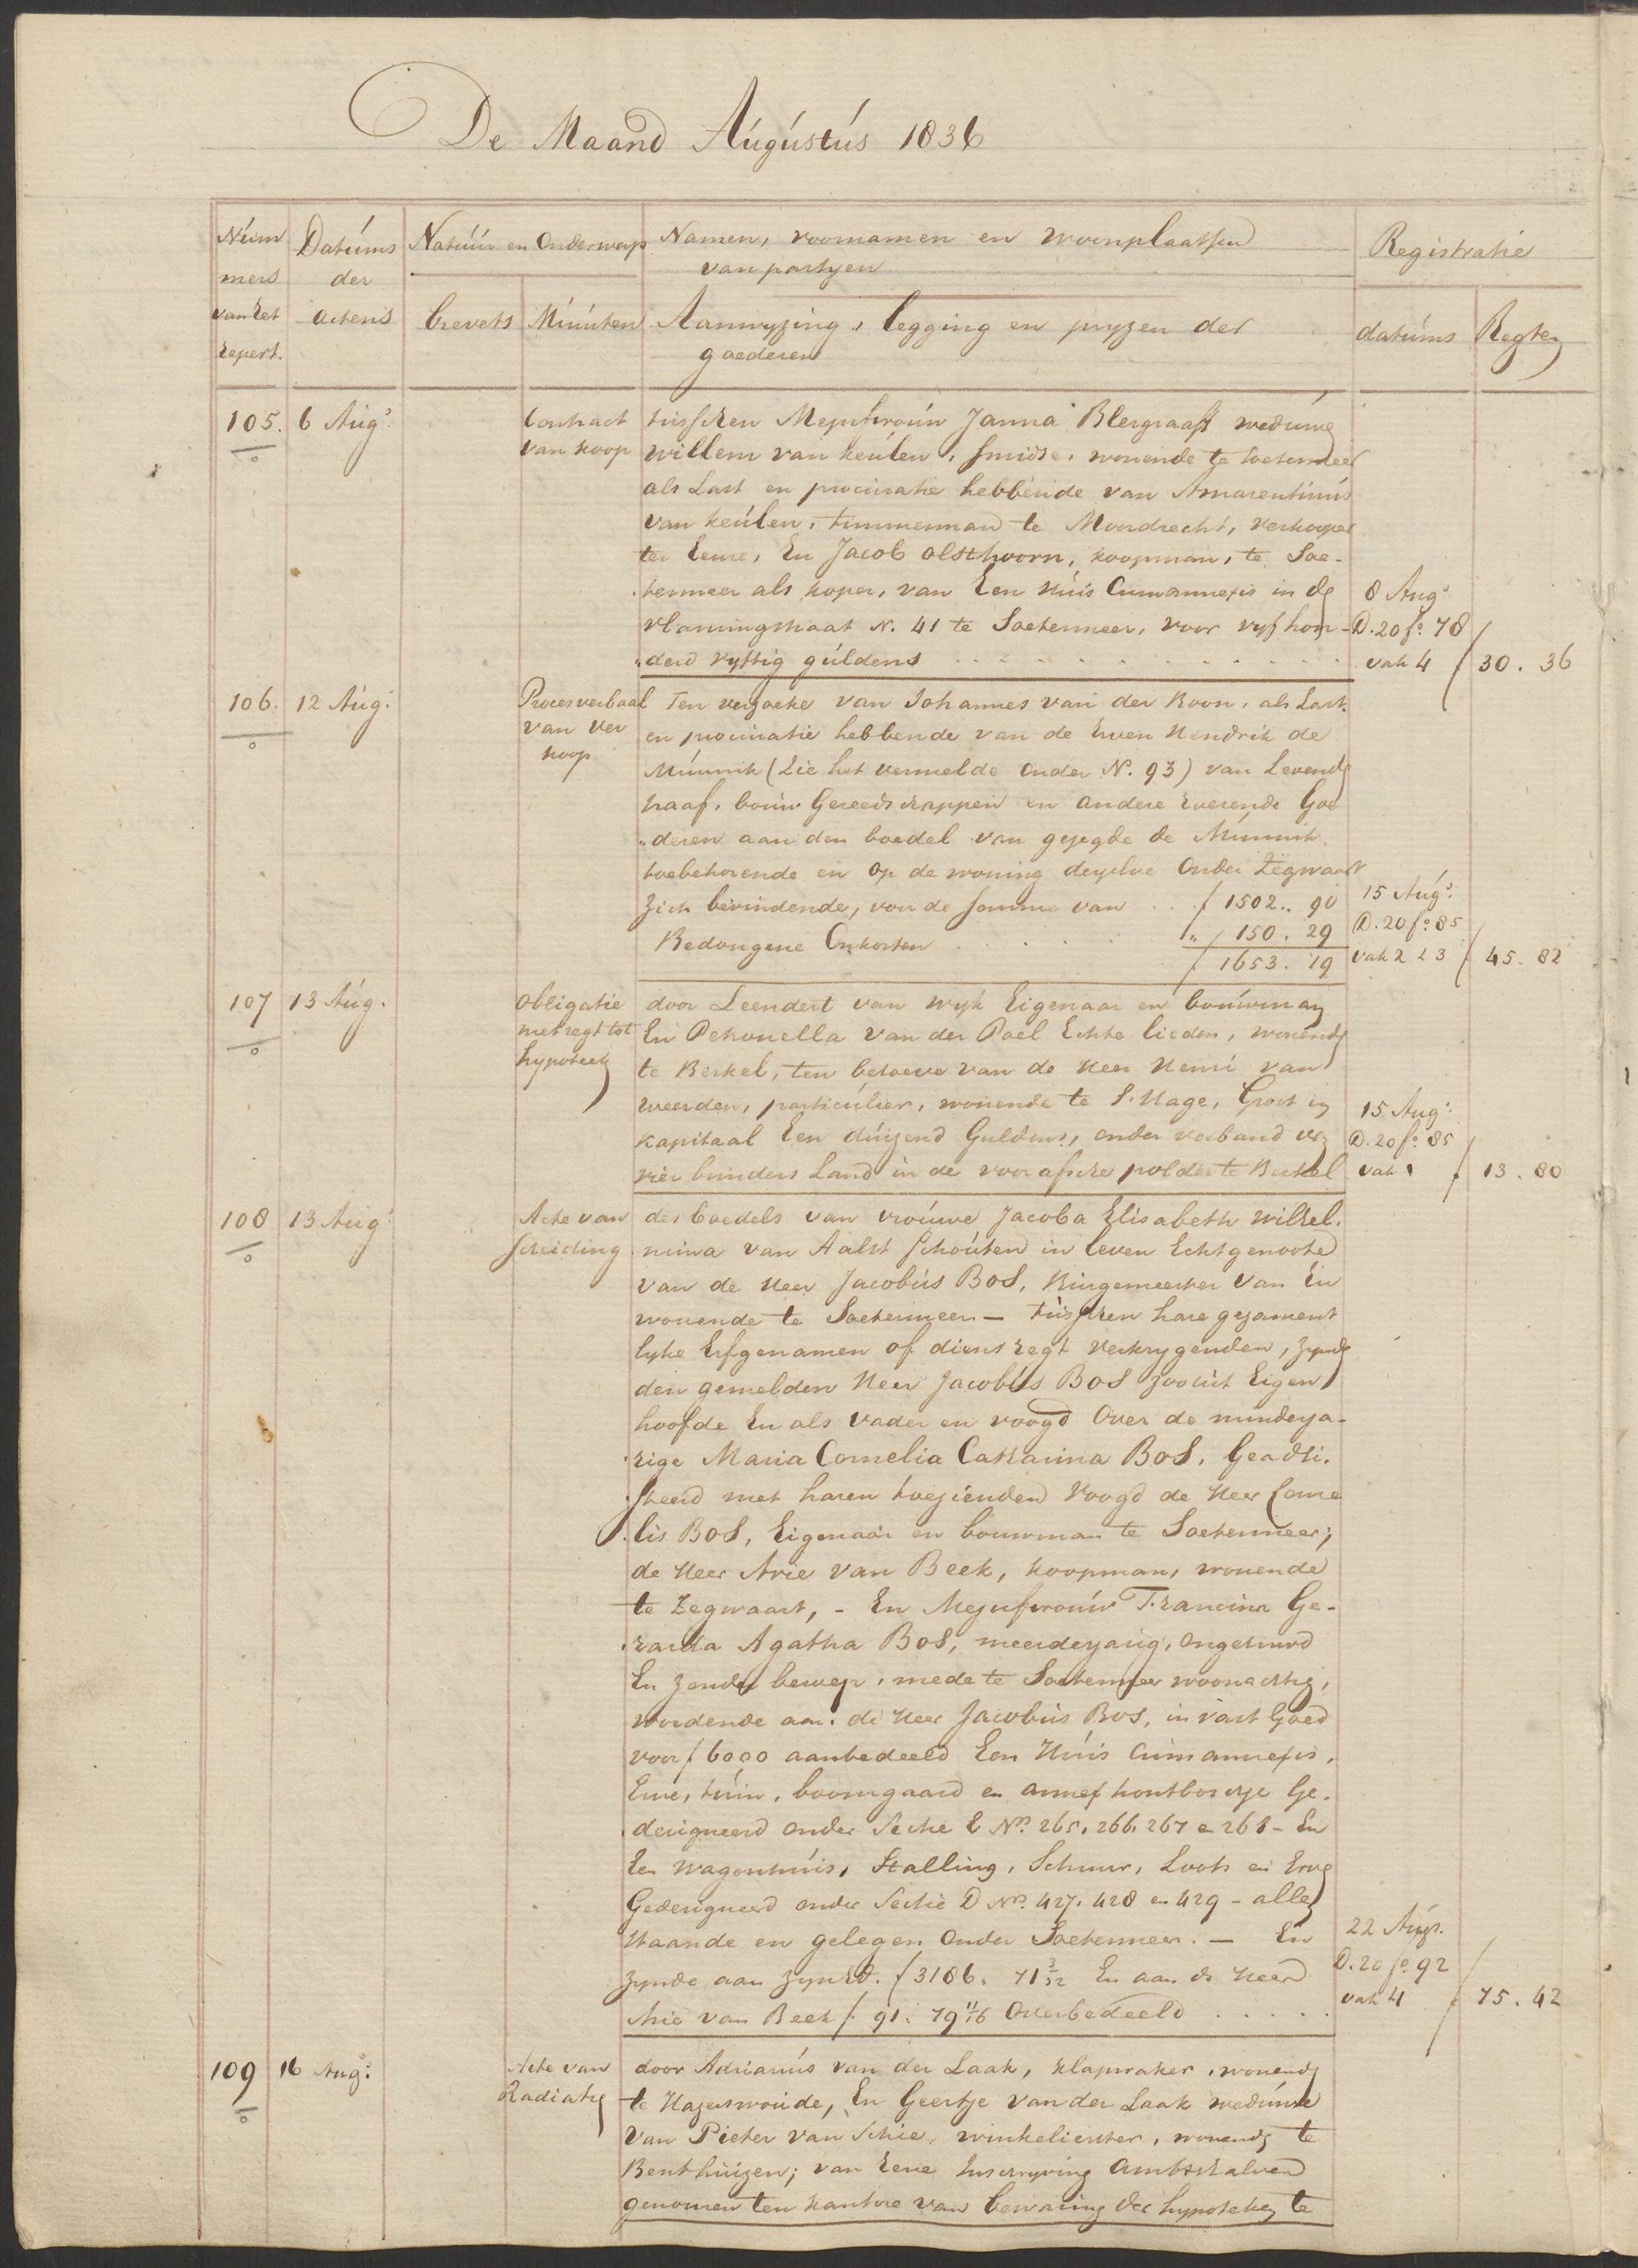 De Maand Augustus 1836
Num
mers
van het
repert.
Datums
der
actens
Natuur en Onderwerp
brevets
Minuten
Namen, voornamen en woonplaatsen
van partyen
Aanwyzing, legging en pryzen der
goederen
Registratie
datums
Regten
105. 6 Aug:
Contract
van koop
tusschen Mejufvrouw Janna Blergraaft weduwe
Willem van Keulen, smidse, wonende te Soetermeer
als Last en procuratie hebbende van Amarentinus
van Keulen, timmerman te Moordrecht, verkooper
ter eenre, En Jacob Olsthoorn, koopman, te Soe-
termeer als koper, van Een Huis Cumannexis in de
vlamingstraat N. 41 te Soetermeer, voor vyf hon-
derd vyftig guldens
8 Aug:
D. 20 fo. 78
vak 4 f 30. 36
106. 12 Aug:
Procesverbaal
van ver
koop
Ten verzoeke van Johannes van der Koon, als Last
en procuratie hebbende van de Erven Hendrik de
Munnik (Zie het vermelde onder N. 93) van Levende
haaf, bouw Gereedschappen en andere roerende Goe
deren aan den boedel van gezegde de Munnik
toebehorende en op de woning deszelve Onder Zegwaart
zich bevindende, voor de somme van f 1502.. 90
Bedongene Onkosten " 150. 29
f 1653. 19
15 Aug:
D. 20 fo. 85
vak 2 & 3 f 45. 82
107 13 Aug.
Obligatie
met regt tot
hypoteek
door Leendert van Wyk Eigenaar en bouwman
En Petronella van der Poel Echte lieden, wonende
te Berkel, ten behoeve van de Heer Henri van
weerden, particulier, wonende te S. Hage, Groot in
kapitaal Een duizend Guldens, onder verband van
vier bunders Land in de voorafsche polder te Berkel
15 Aug:
D. 20 fo. 85
vak 1 f 13. 80
108 13 Aug:
Acte van
scheiding
des boedels van vrouwe Jacoba Elisabeth Wilhel.
mina van Aalst Schouten in leven Echtgenoote
van de Heer Jacobus Bos, Burgemeester van En
wonende te Soetermeer. — tusschen hare gezament
lyke Erfgenamen of diens regt verkrygenden, zynde
den gemelden Heer Jacobus Bos zoo uit Eigen
hoofde En als vader en voogd Over de minderja-
rige Maria Cornelia Catharina Bos, Geadsi.
steerd met haren toeziende Voogd de Heer Corne
lis Bos, Eigenaar en bouwman te Soetermeer;
de Heer Arie van Beek, koopman, wonende
te Zegwaart, - En Mejufvrouw Francina Ge-
rarda Agatha Bos, meerderjarig, Ongehuwd
En zonder beroep, mede te Soetermeer woonachtig,
wordende aan de Heer Jacobus Bos, in vast Goed
voor f 6000 aanbedeeld Een Huis Cumannexis,
Erve, tuin, boomgaard en annex houtboschje Ge.
designeerd onder Sectie E No. 265, 266, 267 en 268 - En
Een Wagenhuis, Stalling, Schuur, Loots en Erve
Gedesigneerd onder Sectie D No. 427. 428 en 429 - alles
staande en gelegen Onder Soetermeer. — En
zynde aan zyn Ed. f 3186. 71 3/32 En aan de Heer
Arie van Beek f. 91. 79 11/16 Overbedeeld
22 Aug.
D. 20 fo. 92
vak 4 f 75. 42
109 16 Aug:
Acte van
Radiatie
door Adrianus van der Laak, klapwaker, wonende
te Hazerswoude, En Geertje van der Laak weduwe
van Pieter van Schie, winkelierster, wonende te
Benthuizen; van Eene Inschryving Ambtshalven
genomen ten kantore van bewaring der hypoteken te